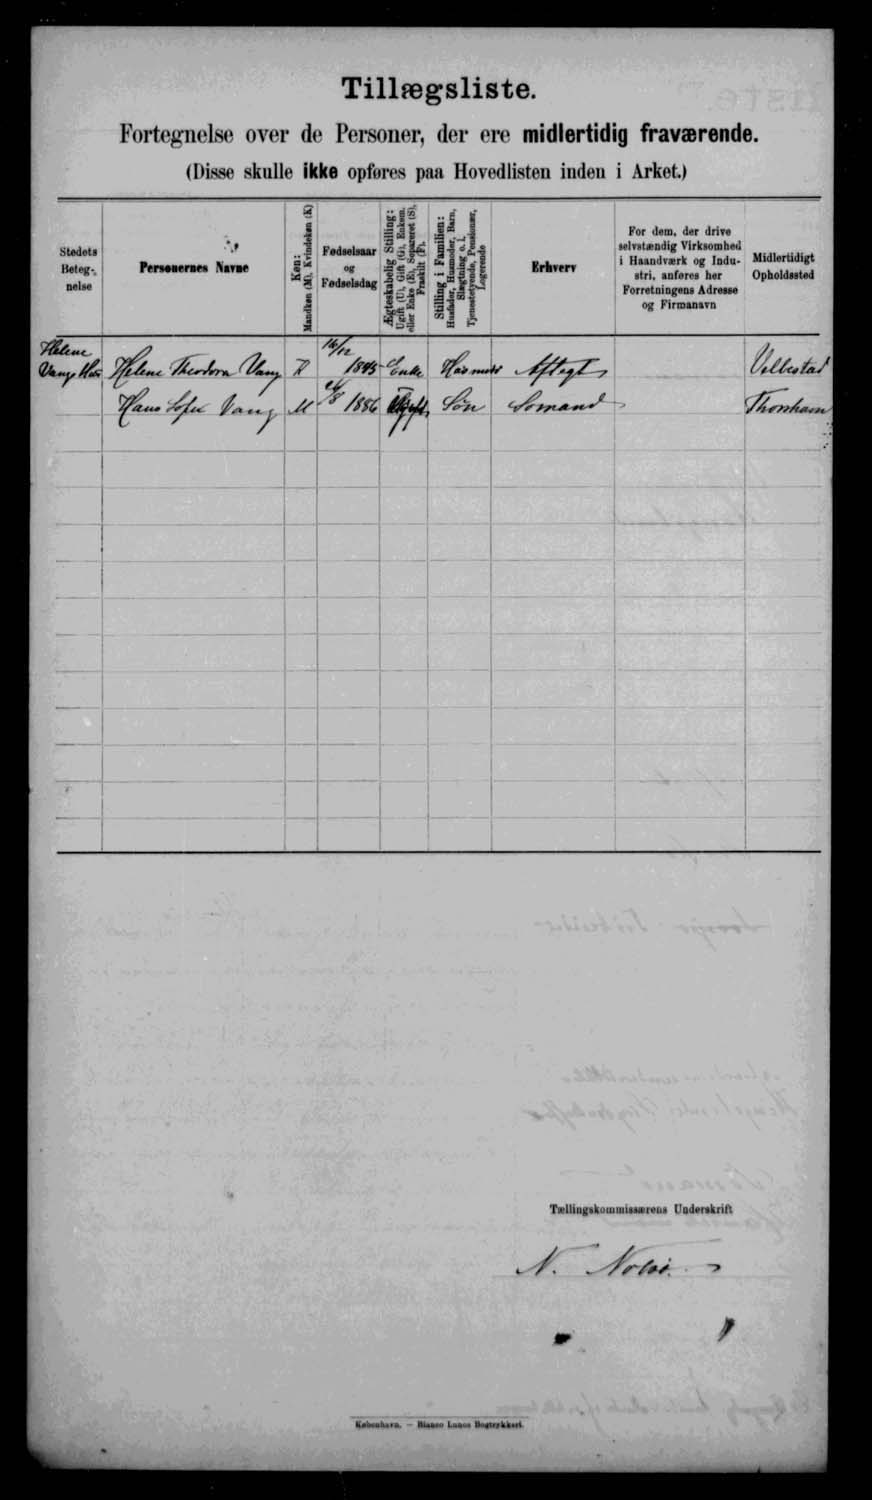 Tillægsliste.
Fortegnelse over de Personer, der ere midlertidig fraværende.
(Disse skulle ikke opføres paa Hovedlisten inden i Arket.)
Stedets Beteg-, nelse
Personernes Navne
Køn: Mandkøn (M), Kvindekøn (K)
Fødselsaar og Fødselsdag
Ægteskabelig Stilling: Ugift (U), Gift (G), Enkem. eller Enke (E), Separeret (S), Fraskilt (F).
Stilling i Familien: Husfader, Husmoder, Barn, Slægtning o. l. Tjenestetyende, Pensionær, Logerende
Erhverv
For dem, der drive selvstændig Virksomhed i Haandværk og Industri, anføres her Forretningens Adresse og Firmanavn
Midlertidigt Opholdssted
Helene Vang Hus Helene Theodora Vang K 16/12 1845 Enke Husmoder Aftægt Velbestad
Hans Sofus Vang M /8 1886 Ugift Søn Sømand Thorshavn
Tællingskommissærens Underskrift
N. Nolsø.
København. — Bianco Lunos Bogtrykkeri.